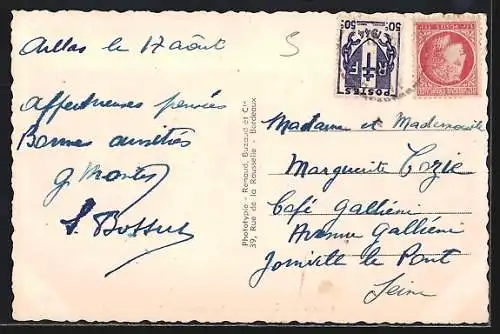 Arles le 17 août
5
Affectueuses pensées
Bonnes amitiés
50c 50c
1944
RF
POSTES
POSTES
Phototypie - Renaud, Buzaud et Cie
39, Rue de la Rousselle - Bordeaux
Madame et Mademoiselle
Marguerite
Café Galliéni
Avenue Galliéni
Joinville le Pont
Seine